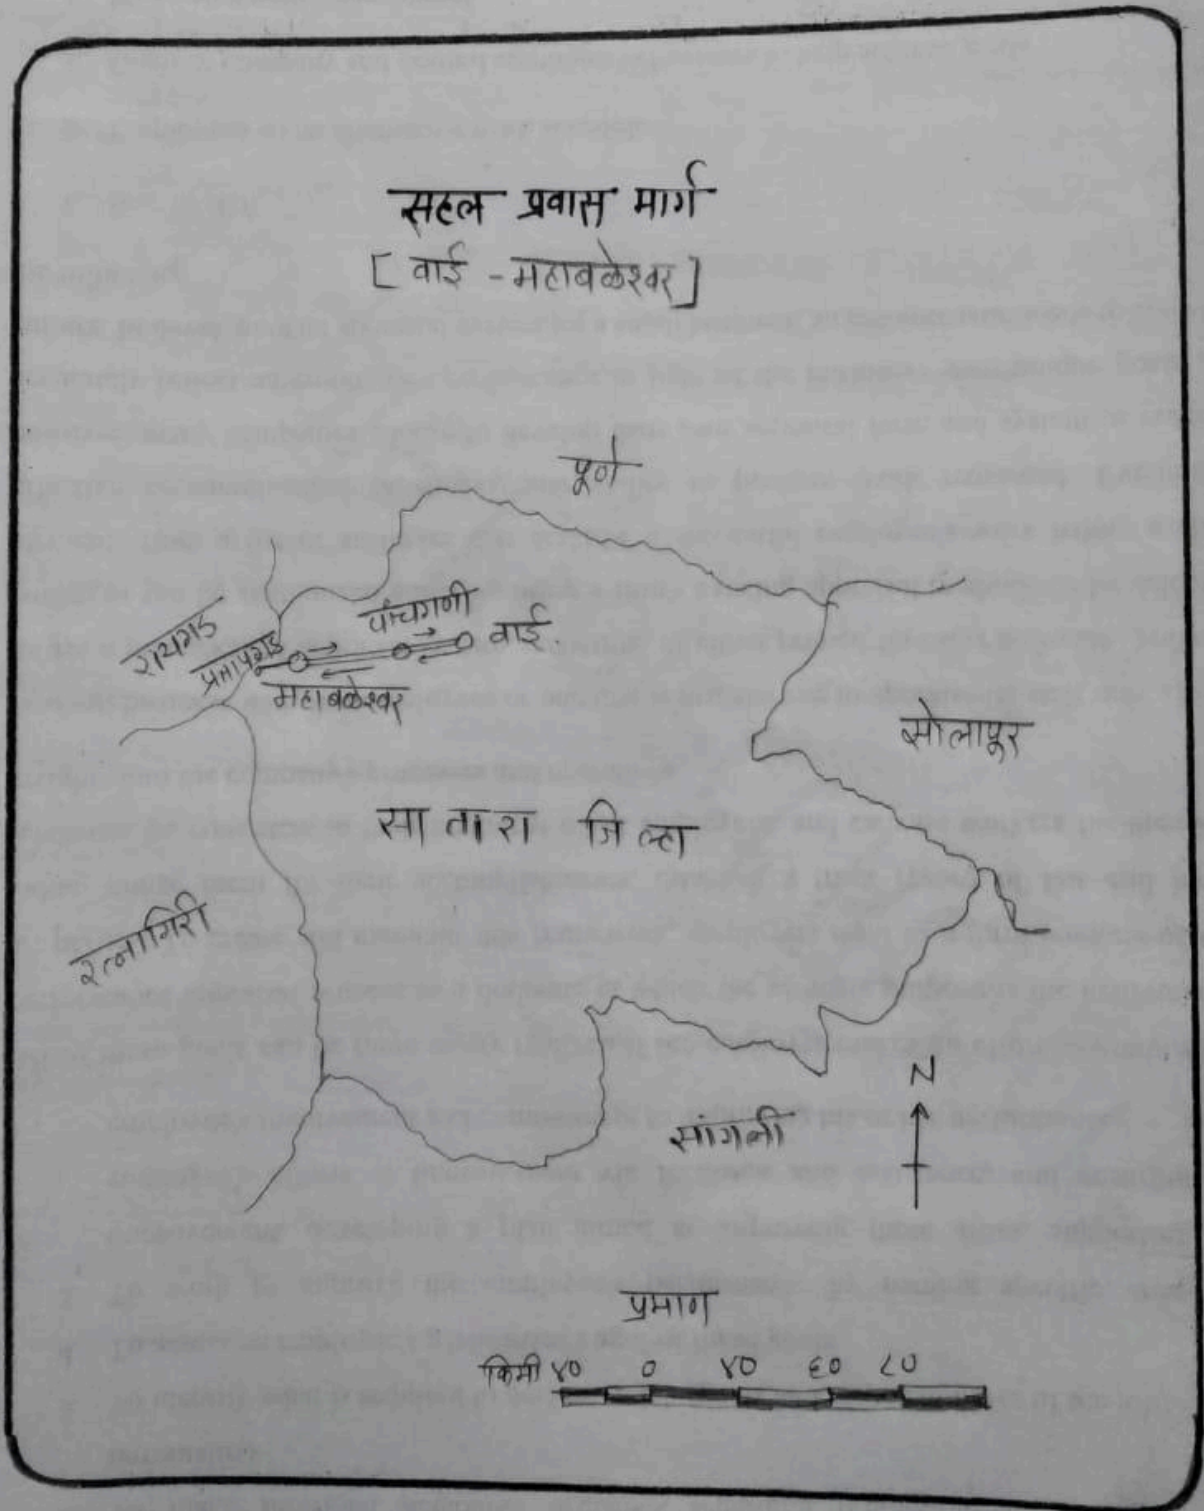 सहल प्रवास मार्ग
[ वाई - महाबळेश्वर ]
पूणे
रायगड
प्रतापगड
पांचगणी
वाई
महाबळेश्वर
सोलापूर
सातारा जिल्हा
रत्नागिरी
सांगली
N
प्रमाण
किमी ४० ० ४० ६० ८०